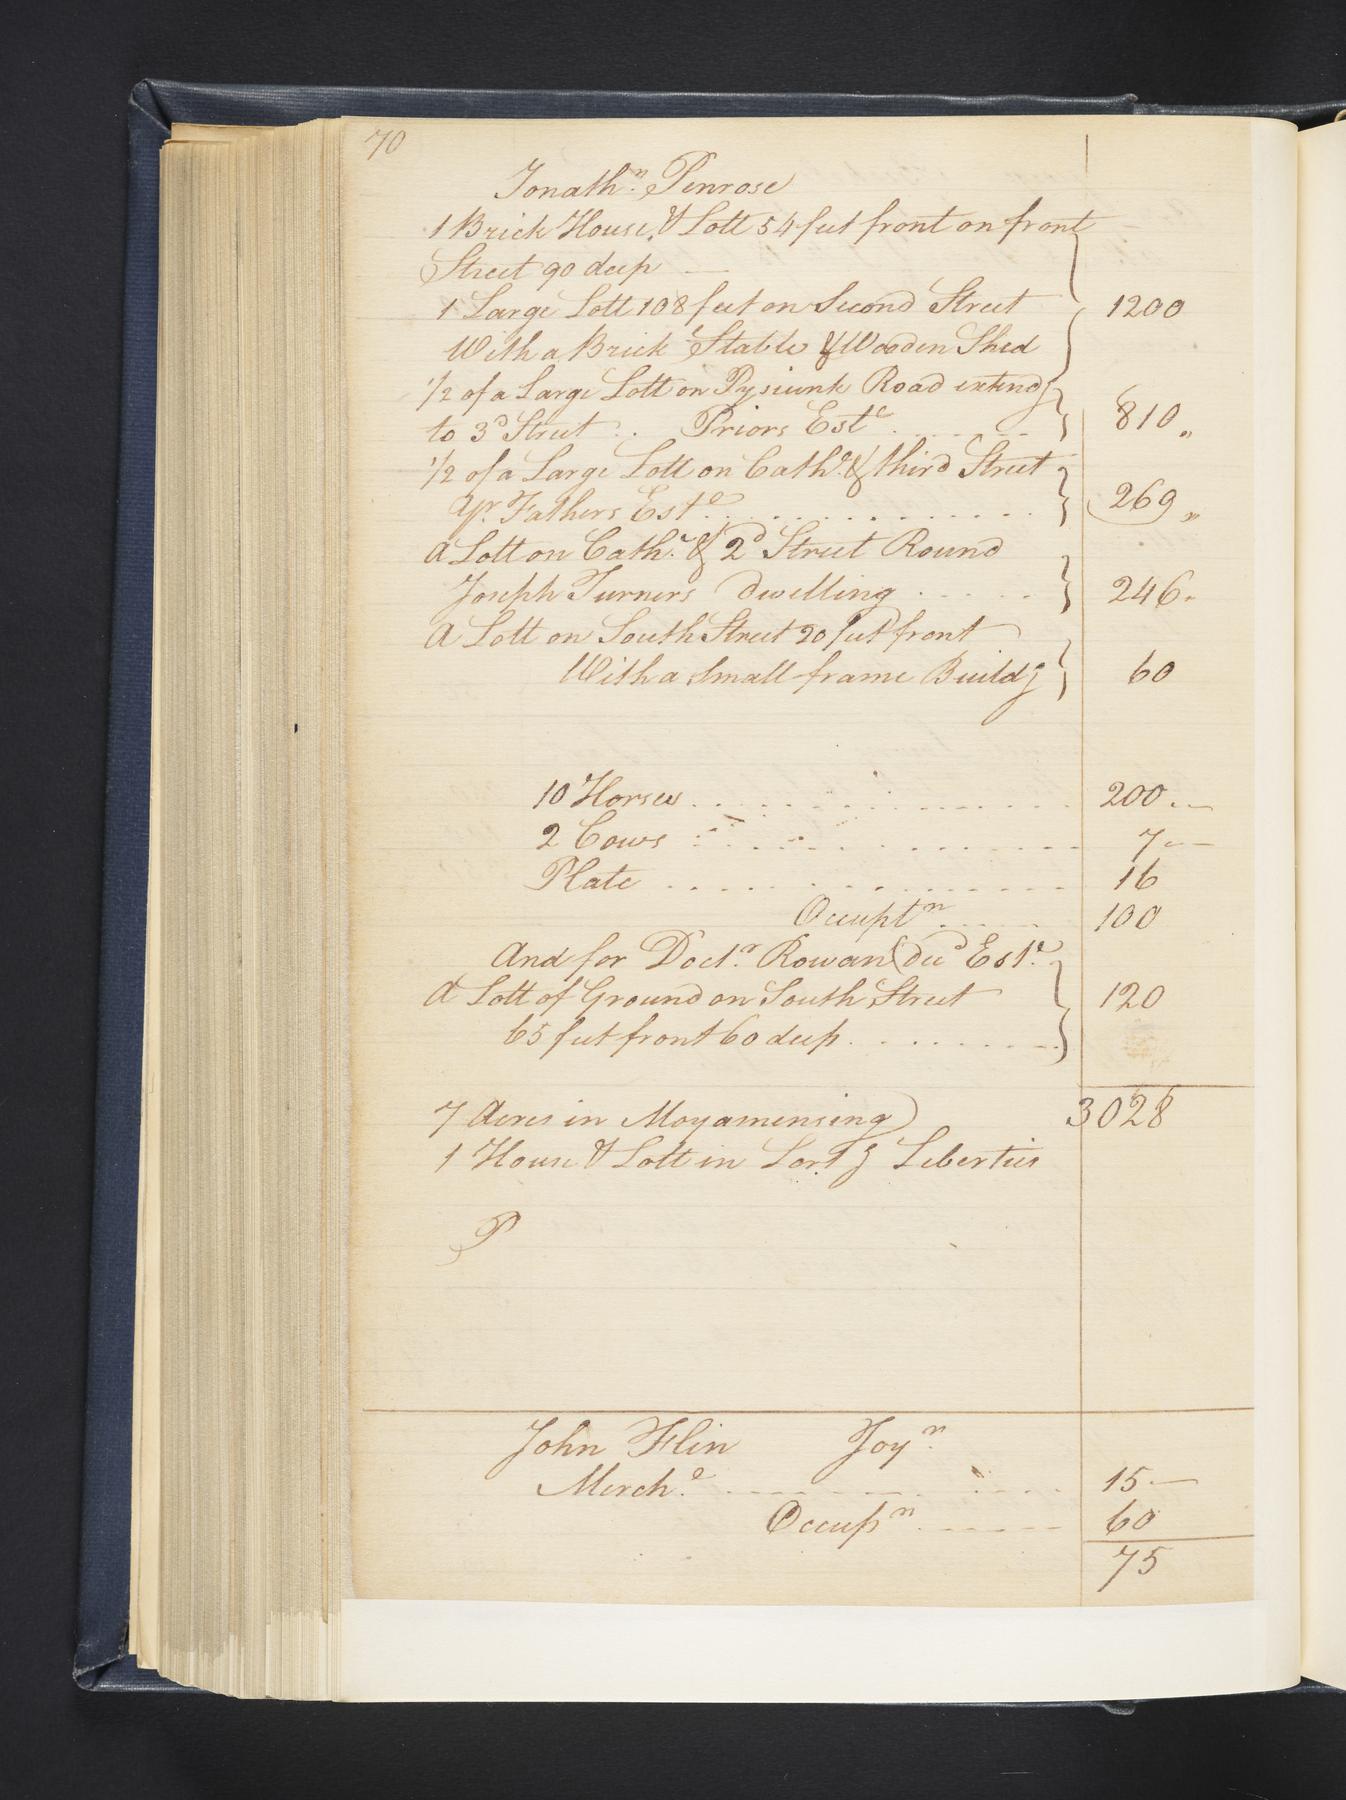 70
Jonathn. Penrose
1 Brick House, & Lott 54 feet front on front
Street 90 deep
1 Large Lott 108 feet on Second Street 1200
With a Brick Stable & Wooden Shed
1/2 of a Large Lott on Pysiunk Road extendg
to 3d Street .. Priors Este. 810 „
1/2 of a Large Lott on Cathe. & third Street
Fathers Este. 269 „
A Lott on Cathe. & 2d Street Round
Joseph Turners dwelling 246 "
A Lott on South Street 20 feet front
With a small frame Buildg 60
10 Horses 200 . —
2 Cows 7 . —
Plate 16
Occuptn 100
And for Doctr. Rowan (decd Este.
A Lott of Ground on South Street 120
65 feet front 60 deep
3028
7 Acres in Moyamensing
1 House & Lott in Liberties
P
John Flin Joyn.
Merche. 15 —
Occupn 60
75